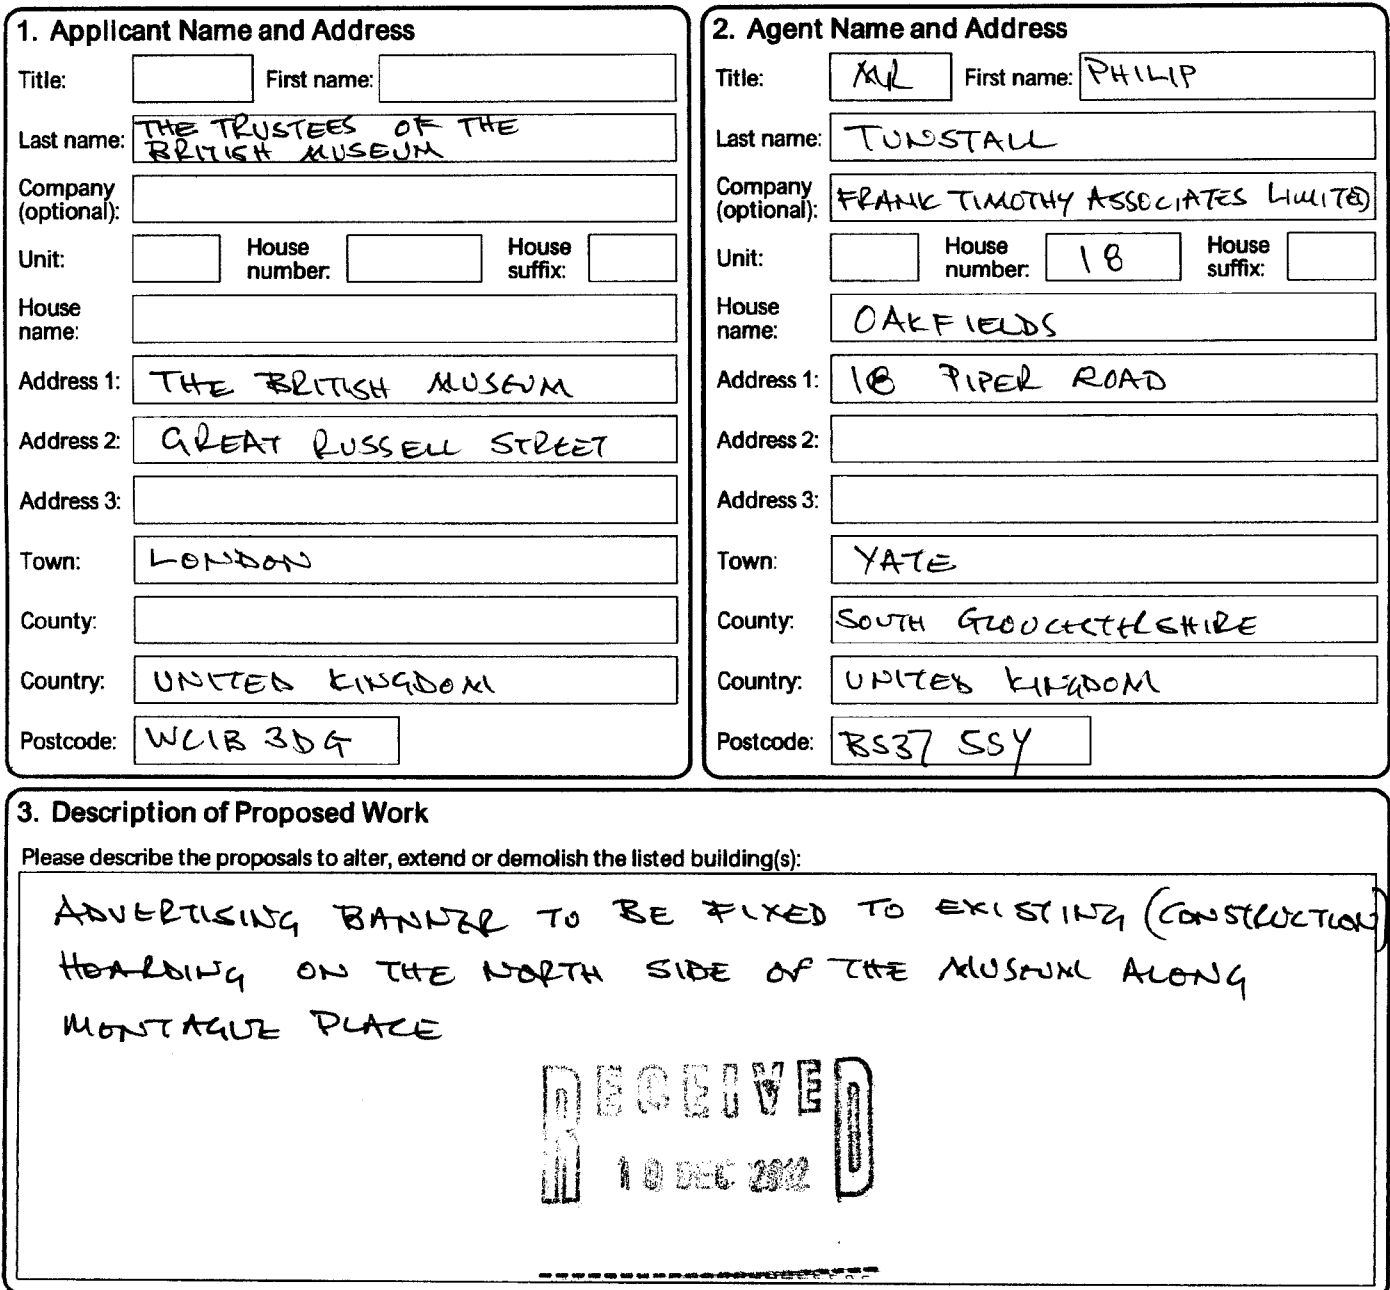 1. Applicant Name and Address
Title: First name:
Last name: THE TRUSTEES OF THE
BRITISH MUSEUM
Company
(optional):
Unit: House
number: House
suffix:
House
name:
Address 1: THE BRITISH MUSEUM
Address 2: GREAT RUSSELL STREET
Address 3:
Town: LONDON
County:
Country: UNITED KINGDOM
Postcode: WC1B 3DG
2. Agent Name and Address
Title: MR First name: PHILIP
Last name: TUNSTALL
Company
(optional): FRANK TIMOTHY ASSOCIATES LIMITED
Unit: House
number: 18 House
suffix:
House
name: OAKFIELDS
Address 1: 18 PIPER ROAD
Address 2:
Address 3:
Town: YATE
County: SOUTH GLOUCESTERSHIRE
Country: UNITED KINGDOM
Postcode: BS37 5SY
3. Description of Proposed Work
Please describe the proposals to alter, extend or demolish the listed building(s):
ADVERTISING BANNER TO BE FIXED TO EXISTING (CONSTRUCTION)
HOARDING ON THE NORTH SIDE OF THE MUSEUM ALONG
MONTAGUE PLACE
RECEIVED
10 DEC 2012